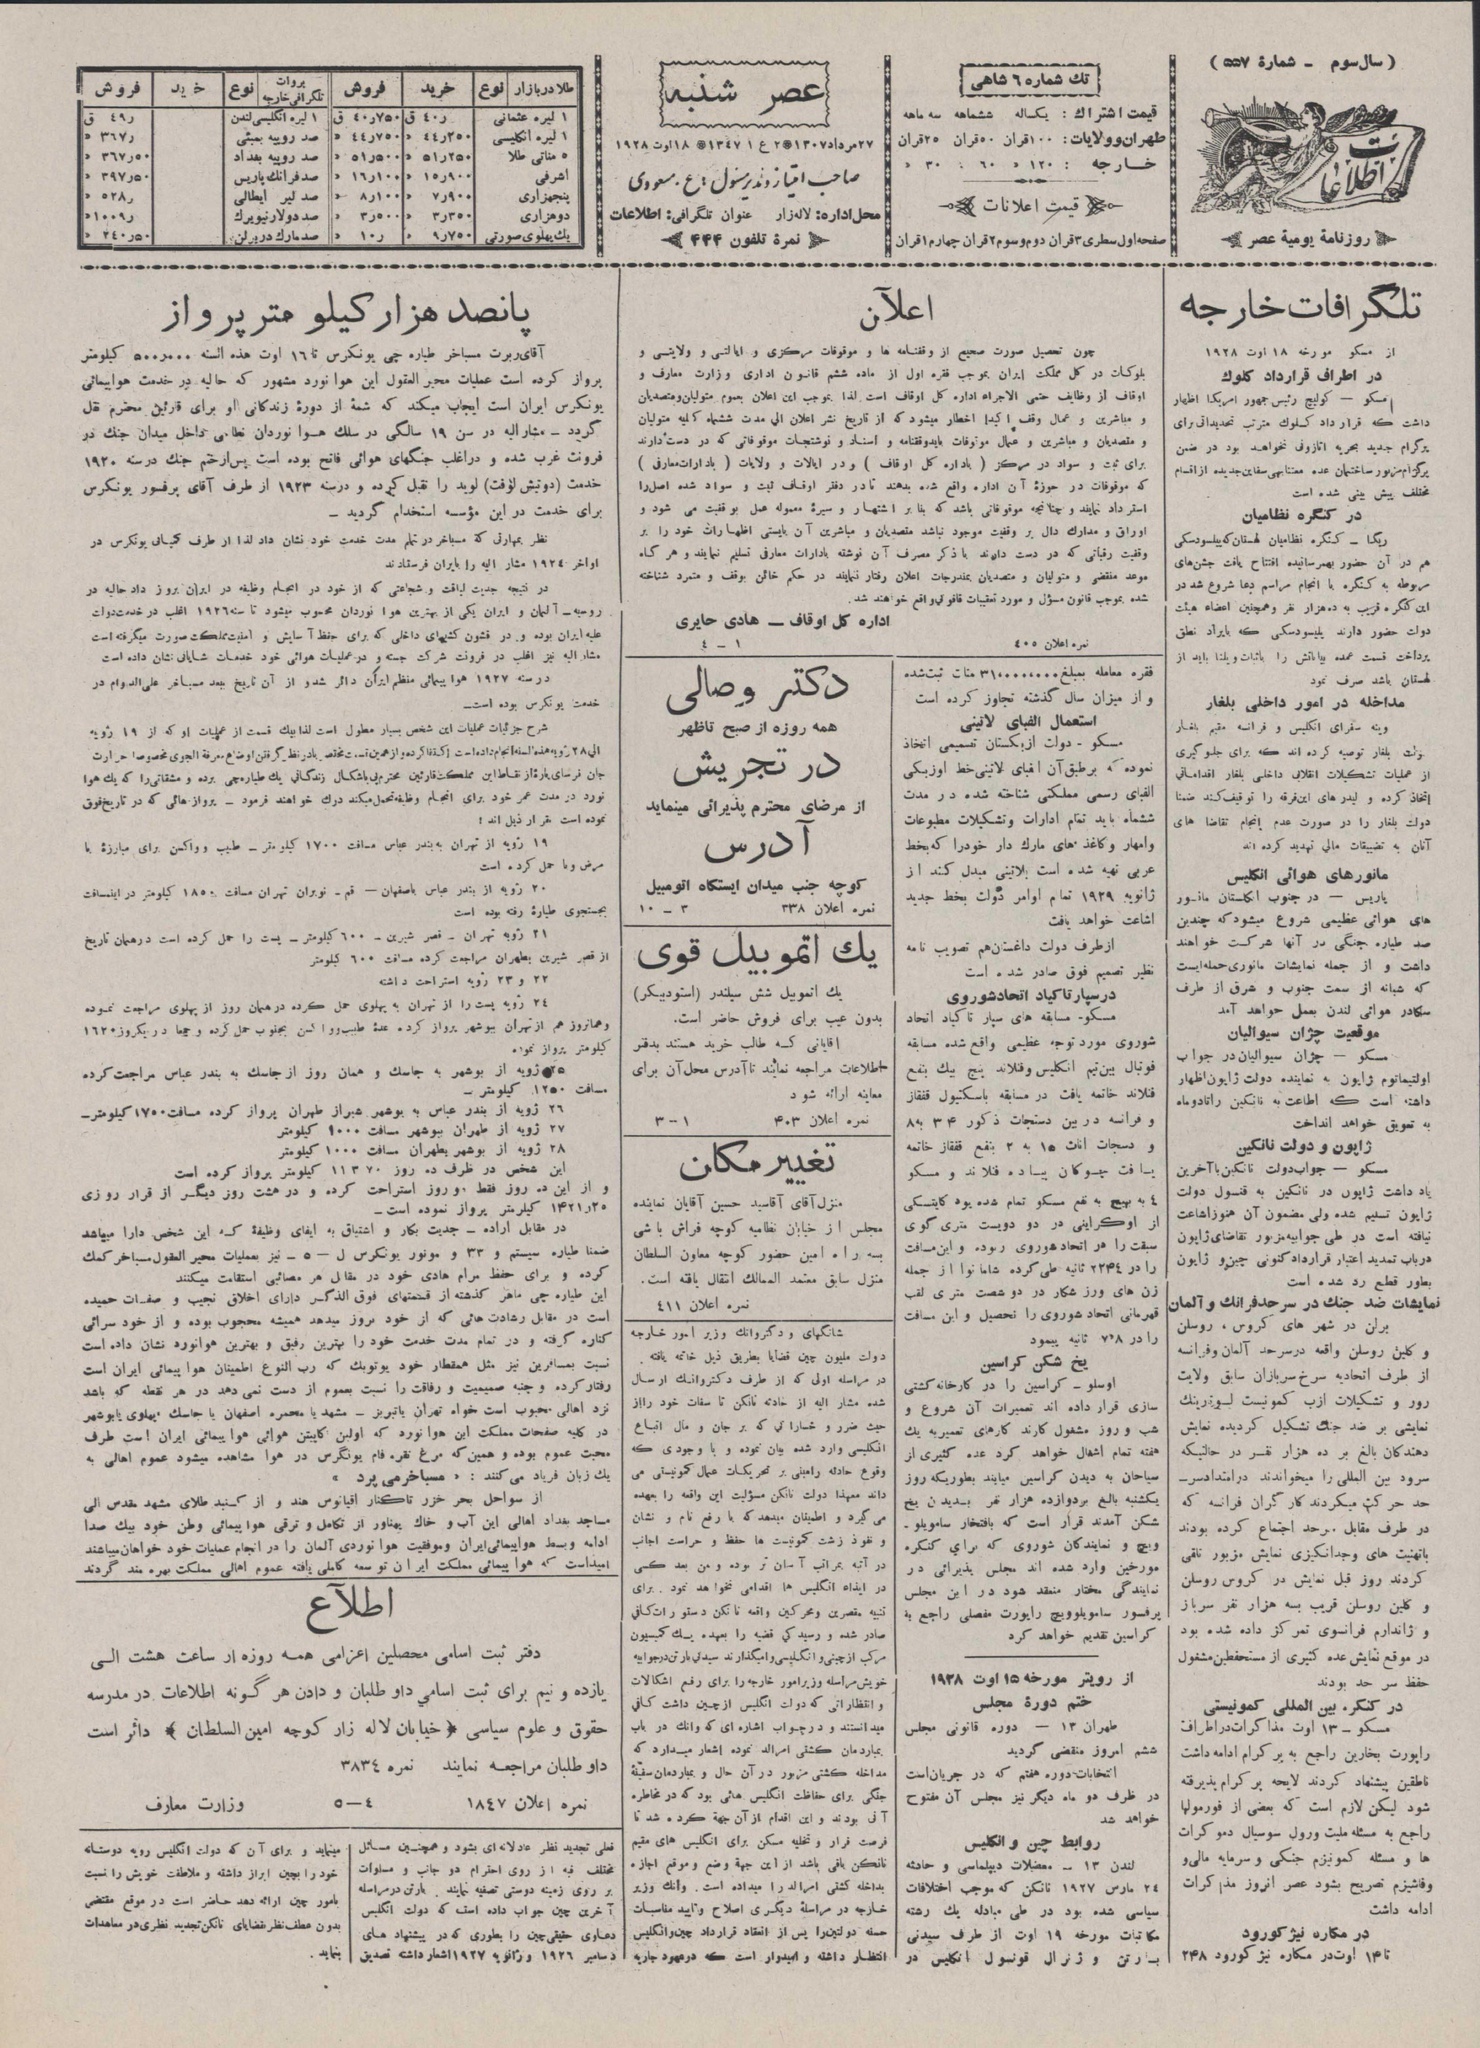 (سال سوم - شمارهٔ ۵۵۷)
اطلاعات
روزنامهٔ یومیهٔ عصر
تك شماره ۶ شاهی
قیمت اشتراك : یکساله ششماهه سه ماهه
طهران و ولایات : ۱۰۰ قران ۵۰ قران ۲۵ قران
خارجه : ۱۲۰ » ۶۰ : ۳۰ »
قیمت اعلانات
صفحه اول سطری ۳ قران دوم و سوم ۲ قران چهارم ۱ قران
عصر شنبه
۲۷ مرداد ۱۳۰۷ ۲ ع ۱ ۱۳۴۷ ۱۸ اوت ۱۹۲۸
صاحب امتیاز و مدیر مسئول : ع . مسعودی
محل اداره : لاله زار عنوان تلگرافی : اطلاعات
نمرهٔ تلفون ۴۴۴
طلا در بازار نوع خرید فروش
۱ لیره عثمانی ۴۰ر ق ۴۰ر۷۵۰ ق
۱ لیره انگلیسی ۴۴ر۲۵۰ » ۴۴ر۷۵۰ »
۵ مناتی طلا ۵۱ر۲۵۰ » ۵۱ر۵۰۰ »
اشرفی ۱۵ر۹۰۰ » ۱۶ر۱۰۰ »
پنجهزاری ۷ر۹۰۰ » ۸ر۱۰۰ »
دوهزاری ۳ر۳۵۰ » ۳ر۵۰۰ »
یك پهلوی صورتی ۹ر۷۵۰ » ۱۰ر »
بروات تلگرافی خارجه نوع خرید فروش
۱ لیره انگلیسی لندن ۴۹ر ق
صد روپیه بمبئی ۳۶۷ر »
صد روپیه بغداد ۳۶۷ر۵۰ »
صد فرانك پاریس ۳۹۷ر۵۰ »
صد لیر ایطالی ۵۲۸ر »
صد دولار نیویرك ۱۰۰۹ر »
صد مارك در برلن ۲۴۰ر۵۰ »
تلگرافات خارجه
از مسکو مورخه ۱۸ اوت ۱۹۲۸
در اطراف قرارداد کلوك
مسکو – کولیج رئیس جمهور امریکا اظهار
داشت که قرار داد کلوك مترتب تحدیداتی رای
پرگرام جدید بحریه اتازونی نخواهد بود در ضمن
پرگرام مزبور ساختمان عده معتنابهی سفاین جدیده از اقسام
مختلف پیش بینی شده است
در کنگره نظامیان
ریگا – کنگره نظامیان لهستان که پیلسودسکی
هم در آن حضور بهمرسانیده افتتاح یافت جشن‌های
مربوطه به کنگره با انجام مراسم دعا شروع شد در
این کنگره قریب به ده هزار نفر و همچنین اعضاء هیئت
دولت حضور دارند پلیسودسکی که بایراد نطق
پرداخت قسمت عمده بیاناتش را باثبات ویلنا باید از
لهستان باشد صرف نمود
مداخله در امور داخلی بلغار
وینه سفرای انگلیس و فرانسه مقیم بلغار
دولت بلغار توصیه کرده اند که برای جلوگیری
از عملیات تشکیلات انقلابی داخلی بلغار اقداماتی
اتخاذ کرده و لیدرهای این فرقه را توقیف کنند ضمنا
دولت بلغار را در صورت عدم انجام تقاضا های
آنان به تضییقات مالی تهدید کرده اند
مانورهای هوائی انگلیس
پاریس – در جنوب انگلستان مانور
های هوائی عظیمی شروع میشود که چندین
صد طیاره جنگی در آنها شرکت خواهند
داشت و از جمله نمایشات مانوری حمله ایست
که شبانه از سمت جنوب و شرق از طرف
سکادر هوائی لندن بعمل خواهد آمد
موقعیت چژان سیوالیان
مسکو – چژان سیوالیان در جواب
اولتیماتوم ژاپون به نماینده دولت ژاپون اظهار
داشته است که اطاعت به نانکین را تا دو ماه
به تعویق خواهد انداخت
ژاپون و دولت نانکین
مسکو – جواب دولت نانکین با آخرین
یاد داشت ژاپون در نانکین به قنسول دولت
ژاپون تسلیم شده ولی مضمون آن هنوز اشاعت
نیافته است در طی جوابیه مزبور تقاضای ژاپون
در باب تمدید اعتبار قرارداد کنونی چین و ژاپون
بطور قطع رد شده است
نمایشات ضد جنك در سرحد فرانك و آلمان
برلن در شهر های کروس ، روسلن
و کلین روسلن واقعه در سرحد آلمان و فرانسه
از طرف اتحادیه سرخ سربازان سابق ولایت
رور و تشکیلات ازب کمونیست لوترینك
نمایشی بر ضد جنك تشکیل کردیده نمایش
دهندگان بالغ بر ده هزار نفر در حالتیکه
سرود بین المللی را میخواندند در امتداد سر-
حد حرکت میکردند کارگران فرانسه که
در طرف مقابل سرحد اجتماع کرده بودند
باتهنیت های وجدانگیزی نمایش مزبور تلقی
کردند روز قبل نمایش در کروس روسلن
و کلین روسلن قریب بسه هزار نفر سرباز
و ژاندارم فرانسوی تمرکز داده شده بود
در موقع نمایش عده کثیری از مستحفظین مشغول
حفظ سر حد بودند
در کنگره بین المللی کمونیستی
مسکو – ۱۳ اوت مذاکرات در اطراف
راپورت بخارین راجع به پرگرام ادامه داشت
ناطقین پیشنهاد کردند لایحه پرگرام پذیرفته
شود لیکن لازم است که بعضی از فورمولها
راجع به مسئله ملیت و رول سوسیال دموکرات
ها و مسئله کمونیزم جنگی و سرمایه مالی و
وفاشیزم تصریح بشود عصر انروز مذاکرات
ادامه داشت
در مکاره نیژ کورود
تا ۱۴ اوت در مکاره نیژ کورود ۲۴۸
اعلان
چون تحصیل صورت صحیح از وقفنامه ها و موقوفات مرکزی و ایالتی و ولایتی و
بلوکات در کل مملکت ایران بموجب فقره اول از ماده ششم قانون اداری وزارت معارف و
اوقاف از وظایف حتمی الاجراء اداره کل اوقاف است لذا بموجب این اعلان بعموم متولیان و متصدیان
و مباشرین و عمال وقف اکیدا اخطار میشود که از تاریخ نشر اعلان الی مدت ششماه کلیه متولیان
و متصدیان و مباشرین و عمال موقوفات باید وقفنامه و اسناد و نوشتجات موقوفاتی که در دست دارند
برای ثبت و سواد در مرکز ( باداره کل اوقاف ) و در ایالات و ولایات ( بادارات معارفی )
که موقوفات در حوزهٔ آن اداره واقع شده بدهند تا در دفتر اوقاف ثبت و سواد شده اصل را
استرداد نمایند و چنانچه موقوفاتی باشد که بنا بر اشتهار و سیرهٔ معموله عمل بوقفیت می شود و
اوراق و مدارك دال بر وقفیت موجود نباشد متصدیان و مباشرین آن بایستی اظهارات خود را بر
وقفیت رقباتی که در دست دارند با ذکر مصرف آن نوشته بادارات معارفی تسلیم نمایند و هر گاه
موعد منقضی و متولیان و متصدیان بمندرجات اعلان رفتار ننمایند در حکم خائن بوقف و متمرد شناخته
شده بموجب قانون مسؤل و مورد تعقیبات قانونی واقع خواهند شد.
اداره کل اوقاف – هادی حایری
نمره اعلان ۴۰۵ ۱ - ۴
فقره معامله بمبلغ ۳۱۰۰۰۰۰۰۰ منات ثبت شده
و از میزان سال گذشته تجاوز کرده است
استعمال الفبای لاتینی
مسکو – دولت ازبکستان تصمیمی اتخاذ
نموده که برطبق آن الفبای لاتینی خط اوزبکی
الفبای رسمی مملکتی شناخته شده در مدت
ششماه باید تمام ادارات و تشکیلات مطبوعات
وامهار و کاغذ های مارك دار خود را که بخط
عربی تهیه شده است بلاتینی مبدل کنند از
ژانویه ۱۹۲۹ تمام اوامر دولت بخط جدید
اشاعت خواهد یافت
از طرف دولت داغستان هم تصویب نامه
نظیر تصمیم فوق صادر شده است
در سپارتاکیاد اتحاد شوروی
مسکو- مسابقه های سپارتاکیاد اتحاد
شوروی مورد توجه عظیمی واقع شده مسابقه
فوتبال بین تیم انگلیس و فنلاند پنج بیك بنفع
فنلاند خاتمه یافت در مسابقه باسکتبول قفقاز
و فرانسه در بین دستجات ذکور ۳۴ به ۸
و دسجات اناث ۱۵ به ۲ بنفع قفقاز خاتمه
یافت چوکان پیاده فنلاند و مسکو
۴ به بهیچ به نفع مسکو تمام شده بود کایتسکی
از اوکراینی در دو دویست متری گوی
سبقت را هر اتحاد شوروی ربوده و این مسافت
را در ۲۲۴۴ ثانیه طی کرده شامانوا از جمله
زن های ورز شکار در دو شصت متری لقب
قهرمانی اتحاد شوروی را تحصیل و این مسافت
را در ۷٫۸ ثانیه پیمود
یخ شکن کراسین
اوسلو – کراسین را در کارخانه کشتی
سازی قرار داده اند تعمیرات آن شروع و
شب و روز مشغول کارند کارهای تعمیریه یك
هفته تمام اشغال خواهد کرد عده کثیری از
سیاحان به دیدن کراسین میایند بطوریکه روز
یکشنبه بالغ بر دوازده هزار نفر بدیدن یخ
شکن آمدند قرار است که بافتخار سامویلو-
ویچ و نمایندگان شوروی که برای کنگره
مورخین وارد شده اند مجلس پذیرائی در
نمایندگی مختار منعقد شود در این مجلس
پرفسور سامویلوویچ راپورت مفصلی راجع به
کراسین تقدیم خواهد کرد
از رویتر مورخه ۱۵ اوت ۱۹۲۸
ختم دورهٔ مجلس
طهران ۱۳ – دوره قانونی مجلس
ششم امروز منقضی گردید
انتخابات دوره هفتم که در جریان است
در ظرف دو ماه دیگر نیز مجلس آن مفتوح
خواهد شد
روابط چین و انگلیس
لندن ۱۳ – معضلات دیپلماسی و حادثه
۲۴ مارس ۱۹۲۷ نانکن که موجب اختلافات
سیاسی شده بود در طی مبادله یك رشته
مکاتبات مورخه ۱۹ اوت از طرف سیدنی
بارتن و ژنرال قونسول انگلیس در
دکتر وصالی
همه روزه از صبح تاظهر
در تجریش
از مرضای محترم پذیرائی مینماید
آدرس
کوچه جنب میدان ایستگاه اتومبیل
نمره اعلان ۳۳۸ ۳ - ۱۰
یك اتموبیل قوی
یك اتمویل شش سیلندر (استودبیکر)
بدون عیب برای فروش حاضر است.
آقایانی که طالب خرید هستند بدفتر
اطلاعات مراجعه نمایند تا آدرس محل آن برای
معاینه ارائه شود
نمره اعلان ۴۰۳ ۱-۳
تغییر مکان
منزل آقای آقاسید حسین آقایان نماینده
مجلس از خیابان نظامیه کوچه فراش باشی
به راه امین حضور کوچه معاون السلطان
منزل سابق معتمد الممالك انتقال یافته است.
نمره اعلان ۴۱۱
شانگهای و دکتر وانك وزیر امور خارجه
دولت ملیون چین قضایا بطریق ذیل خاتمه یافته .
در مراسله اولی که از طرف دکتر وانك ارسال
شده مشار الیه از حادثه نانکن تا سفات خود را از
حیث ضرر و خساراتی که بر جان و مال اتباع
انگلیسی وارد شده بیان نموده و با وجودی که
وقوع حادثه رامبنی بر تحریکات عمال کمونیستی می
داند معهذا دولت نانکن مسؤلیت این واقعه را بعهده
می گیرد و اطمینان میدهد که با رفع نام و نشان
و نفوذ زشت کمونیست ها حفظ و حراست اجانب
در آتیه بمراتب آسان تر بوده و من بعد کسی
در ایذاء انگلیس ها اقدامی نخواهد نمود . برای
تنبیه مقصرین و محرکین واقعه نانکن دستورات کافی
صادر شده و رسیدگی قضیه را بعهده یك کمیسیون
مرکب از چینی و انگلیسی وامیگذارند سیدنی بارتن در جوابیه
خویش مراسله وزیر امور خارجه را برای رفع اشکالات
و انتظاراتی که دولت انگلیس از چین داشت کافی
میدانستند و در جواب اشاره ای که وانك در باب
بمباردمان کشتی امرالد نموده اشعار میدارد که
مداخله کشتی مزبور در آن حال و بمباردمان سفینهٔ
جنگی برای حفاظت انگلیس هائی بود که در مخاطره
آنی بودند و این اقدام از آن جهة کرده شد تا
فرصت فرار و تخلیه مسکن برای انگلیس های مقیم
نانکن باقی باشد از این جهة وضع و موقع اجازه
بداخله کشتی امرالد را میداده است . وانك وزیر
خارجه در مراسلهٔ دیگری اصلاح و تایید مناسبات
حسنه دولتین را پس از انعقاد قرارداد چین و انگلیس
انتظار داشته و امیدوار است که در عهود جاریه
پانصد هزار کیلو متر پرواز
آقای ربرت مساخر طیاره چی یونکرس تا ۱۶ اوت هذه السنه ۵۰۰ر۰۰۰ کیلومتر
پرواز کرده است عملیات محیر العقول این هوا نورد مشهور که حالیه در خدمت هواپیمائی
یونکرس ایران است ایجاب میکند که شمهٔ از دورهٔ زندگانی او برای قارئین محترم نقل
گردد – مشارالیه در سن ۱۹ سالگی در سلك هوا نوردان نظامی داخل میدان جنك در
فرونت غرب شده و دراغلب جنگهای هوائی فاتح بوده است پس از ختم جنك در سنه ۱۹۲۰
خدمت (دوتیش لوفت) لوید را تقبل کرده و در سنه ۱۹۲۳ از طرف آقای پرفسور یونکرس
برای خدمت در این مؤسسه استخدام گردید –
نظر بمهارتی که مساخر در تمام مدت خدمت خود نشان داد لذا از طرف کمپانی یونکرس در
اواخر ۱۹۲۴ مشار الیه را بایران فرستادند
در نتیجه جدیت لیاقت و شجاعتی که از خود در انجام وظیفه در ایران بروز داد حالیه در
روسیه- آلمان و ایران یکی از بهترین هوا نوردان محسوب میشود تا سنه ۱۹۲۶ اغلب در خدمت دولت
علیه ایران بوده و در قشون کشیهای داخلی که برای حفظ آسایش و امنیت مملکت صورت میگرفته است
مشار الیه نیز اغلب در فرونت شرکت جسته و در عملیات هوائی خود خدمات شایانی نشان داده است
در سنه ۱۹۲۷ هواپیمائی منظم ایران دائر شد و از آن تاریخ ببعد مساخر علی الدوام در
خدمت یونکرس بوده است-
شرح جزئیات عملیات این شخص بسیار مطول است لذا بیك قسمت از عملیات او که از ۱۹ ژویه
جان فرسای پارهٔ از نقاط این مملکت قارئین محترم پی باشکال زندگانی یك طیاره چی برده و مشقاتی را که یك هوا
نورد در مدت عمر خود برای انجام وظیفه تحمل میکند درك خواهند فرمود – پرواز هائی که در تاریخ فوق
نموده است بقرار ذیل اند :
۱۹ ژویه از تهران به بندر عباس مسافت ۱۷۰۰ کیلو متر – طبیب و واکسن برای مبارزهٔ با
مرض وبا حمل کرده است
۲۰ ژویه از بندر عباس باصفهان – قم – نوبران تهران مسافت ۱۸۵۰ کیلومتر در اینمسافت
بجستجوی طیارهٔ رفته بوده است
۲۱ ژویه تهران – قصر شیرین – ۶۰۰ کیلومتر – پست را حمل کرده است در همان تاریخ
از قصر شیرین بطهران مراجعت کرده مسافت ۶۰۰ کیلومتر
۲۲ و ۲۳ ژویه استراحت داشته
۲۴ ژویه پست را از تهران به پهلوی حمل کرده در همان روز از پهلوی مراجعت نموده
وهمانروز هم از تهران ببوشهر پرواز کرده . عدهٔ طبیب و واکسن بجنوب حمل کرده و جمعا در یکروز ۱۶۲۰
کیلومتر پرواز نموده
۲۵ ژویه از بوشهر به جاسك و همان روز از جاسك به بندر عباس مراجعت کرده
مسافت ۱۲۵۰ کیلومتر –
۲۶ ژویه از بندر عباس به بوشهر شیراز طهران پرواز کرده مسافت ۱۷۵۰ کیلومتر-
۲۷ ژویه از طهران ببوشهر مسافت ۱۰۰۰ کیلومتر
۲۸ ژویه از بوشهر بطهران مسافت ۱۰۰۰ کیلومتر
این شخص در ظرف ده روز ۱۱۳۷۰ کیلومتر پرواز کرده است
و از این ده روز فقط دو روز استراحت کرده و در هشت روز دیگر از قرار روزی
۱۴۲۱ر۲۵ کیلومتر پرواز نموده است –
در مقابل اراده – جدیت بکار و اشتیاق به ایفای وظیفهٔ که این شخص دارا میباشد
ضمنا طیاره سیستم و ۳۳ و موتور یونکرس ل – ۵ – نیز بعملیات محیر العقول مساخر کمك
کرده و برای حفظ مرام هادی خود در مقابل هر مصائبی استقامت میکنند
این طیاره چی ماهر گذشته از قسمتهای فوق الذکر دارای اخلاق نجیب و صفات حمیده
است در مقابل رشادت هائی که از خود بروز میدهد همیشه محجوب بوده و از خود سرائی
کناره گرفته و در تمام مدت خدمت خود را بهترین رفیق و بهترین هوانورد نشان داده است
نسبت بمسافرین نیز مثل همقطار خود یوتوبك که رب النوع اطمینان هوا پیمائی ایران است
رفتار کرده و جنبه صمیمیت و رفاقت را نسبت بعموم از دست نمی دهد در هر نقطه که باشد
نزد اهالی محبوب است خواه تهران یا تبریز – مشهد یا محمره اصفهان یا جاسك پهلوی یا بوشهر
در کلیه صفحات مملکت این هوا نورد که اولین کاپیتن هوائی هوا پیمائی ایران است طرف
محبت عموم بوده و همین که مرغ نقره فام یونگرس در هوا مشاهده میشود عموم اهالی به
یك زبان فریاد می کنند : « مساخر می پرد »
از سواحل بحر خزر تا کنار اقیانوس هند و از گنبد طلای مشهد مقدس الی
مساجد بغداد اهالی این آب و خاك پهناور از تکامل و ترقی هوا پیمائی وطن خود بیك صدا
ادامه و بسط هواپیمائی ایران و موفقیت هوا نوردی آلمان را در انجام عملیات خود خواهان میباشند
امید است که هوا پیمائی مملکت ایران توسعه کاملی یافته عموم اهالی مملکت بهره مند گردند
اطلاع
دفتر ثبت اسامی محصلین اعزامی همه روزه از ساعت هشت الی
یازده و نیم برای ثبت اسامی داوطلبان و دادن هر گونه اطلاعات در مدرسه
حقوق و علوم سیاسی ( خیابان لاله زار کوچه امین السلطان ) دائر است
داوطلبان مراجعه نمایند نمره ۳۸۳۴
نمره اعلان ۱۸۴۷ ۴—۵ وزارت معارف
فعلی تجدید نظر عادلانه ای بشود و همچنین مسائل
مختلف فیه از روی احترام دو جانب و مساوات
بر روی زمینه دوستی تصفیه نمایند . بارتن در مراسله
آخرین چین جواب داده است که دولت انگلیس
دعاوی حقیقی چین را بطوری که در پیشنهاد های
دسامبر ۱۹۲۶ و ژانویه ۱۹۲۷ اشعار داشته تصدیق
مینماید و برای آن که دولت انگلیس رویه دوستانه
خود را بچین ابراز داشته و ملاطفت خویش را نسبت
بامور چین ارائه دهد حاضر است در موقع مقتضی
بدون عطف نظر قضایای نانکن تجدید نظری در معاهدات
بنماید.